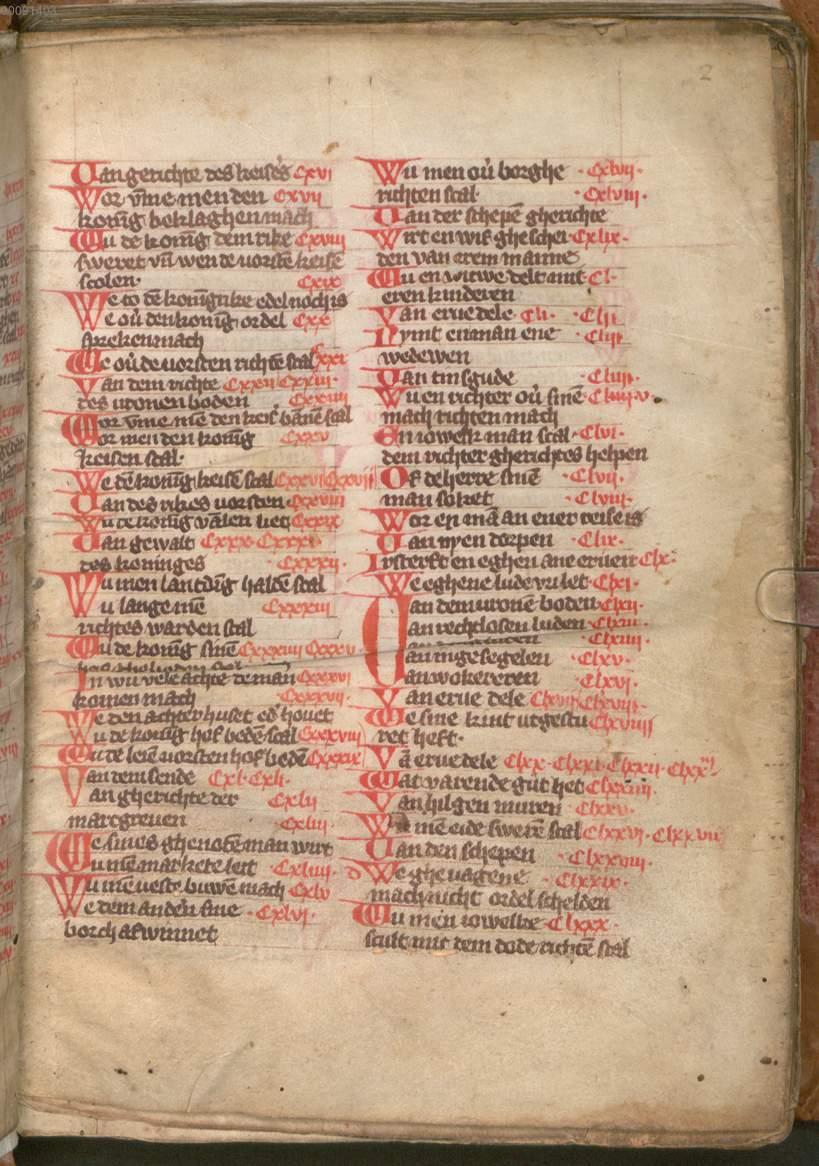 00091403
2
Van gerichte des keisers Cxvi
Wor vm̄e men den Cxvii
konīg beklaghen mach
Wu de konīg dem rike Cxviii
sweret vn̄ wen de vorstē keise
scolen· Cxix
We to dē konīgrike edel noch is
We ou̇ den konīg ordel Cxx
spreken mach
We ou̇ de vorsten richtē scal Cxxi
Van dem richte Cxxii Cxxiii·
des vronen boden Cxxiiii
Wor vm̄e mē den keiſ bānē scal
Wor men den konīg Cxxv
keisen scal·
We dē konīg keisē scal Cxxvi Cxxvii
Van des rikes vorsten Cxxviii
Wu de konīg vālen let Cxxix
Van gewalt Cxxx· Cxxxi·
des koninges Cxxxii·
Wu men lantdīg haldē scal
Wu lange mē Cxxxiii
richtes warden scal
Wu de konīg sinē Cxxxiiii Cxxxv·
In wu vele achte de man Cxxxvi
komen mach Cxxxvii·
We den achter huset ed' houet
Wu de konīg hof bedē scal Cxxxviii
Wu de leiē vorsten hof bedē Cxxxix
Van dem sende Cxl· Cxli·
Van gherichte der Cxlii
marcgreuen Cxliii
We sines ghenotē man wirt
Wu mē market e leit Cxliiii·
Wu mē veste buwē mach Cxlv
We dem andern sine ·Cxlvi·
borch af winnet
Wu men ou̇ borghe ·Cxlvii·
richten scal· Cxlviii·
Van der schepē gherichte
Wirt en wif ghe schei·Cxlix·
den van erem manne
Wu en witwe delt mit·Cl·
eren kinderen
Van erue dele·Cli· ·Clii·
Nymt en man ene Cliii
wedewen
Van tinsgude ·Cliiii·
Wu en richter ou̇ sinē· Cliiii·v·
mach richten mach
En iowelk man scal·Clvi·
dem richter gherichtes helpen
Of de herre sinē ·Clvii·
man soket ·Clviii·
Wor en mā an ener reise is
Van nyen dorpen ·Clix·
Irsterft en eghen ane eruen Clx·
We eghene lude vri let·Clxi·
Van dem vronē boden·Clxii·
Van rechtlosen luden·Clxiii·
·Clxiiii·
Van ingesegelen ·Clxv·
Van wokereren ·Clxvi·
Van erue dele Clxvii Clxviii·
We sine kint vtgestu Clxviiii
ret heft·
Vā erue dele Clxx·Clxxi·Clxxii·Clxxiii
Wat varende gůt het Clxxiiii·
Van hilgen muren ·Clxxv·
Wu mē eide swerē scal Clxxvi·Clxxvii
Van den schepen ·Clxxviii·
We ghe uagene ·Clxxix·
mach nicht ordel schelden
Wu men iowelke·Clxxx·
scult mit dem dode richtē scal